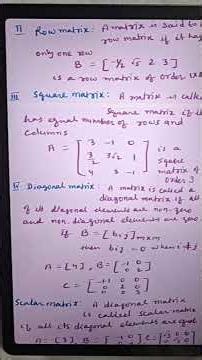 II Row matrix: A matrix is said to
row matrix if it has
only one row
B = [-1/2 √5 2 3]
is a row matrix of order 1x
III Square matrix: A matrix is called
Square matrix if
has equal number of rows and
columns
A = [ 3 -1 0
3/2 3√2 1
4 3 -1 ]
is a
square
matrix of
order 3
IV Diagonal matrix: A matrix is called a
diagonal matrix if all
of its diagonal elements are non-zero
and non diagonal elements are zero
if B = [bij]mxm
then bij = 0 when i ≠ j
A = [4], B = [-1 0
0 2]
C = [-1.1 0 0
0 2 0
0 0 3]
Scalar matrix: A diagonal matrix
is called scalar matrix
if all its diagonal elements are equal
A = [3], B = [-1 0